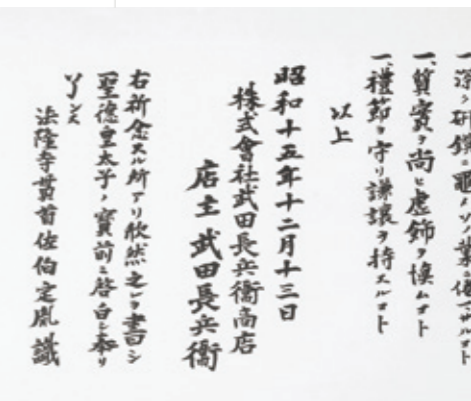 一、深ク研鑽ニ力メソノ業ニ倦マザルコト
一、質實ヲ尚ヒ虚飾ヲ慎ムコト
一、禮節ヲ守リ謙譲ヲ持スルコト
以上
昭和十五年十二月十三日
株式會社武田長兵衞商店
店主 武田長兵衞
右祈念スル所アリ欣然之レヲ書シ
聖徳皇太子ノ寳前ニ啓白シ奉リ
了ンヌ
法隆寺貫首佐伯定胤識